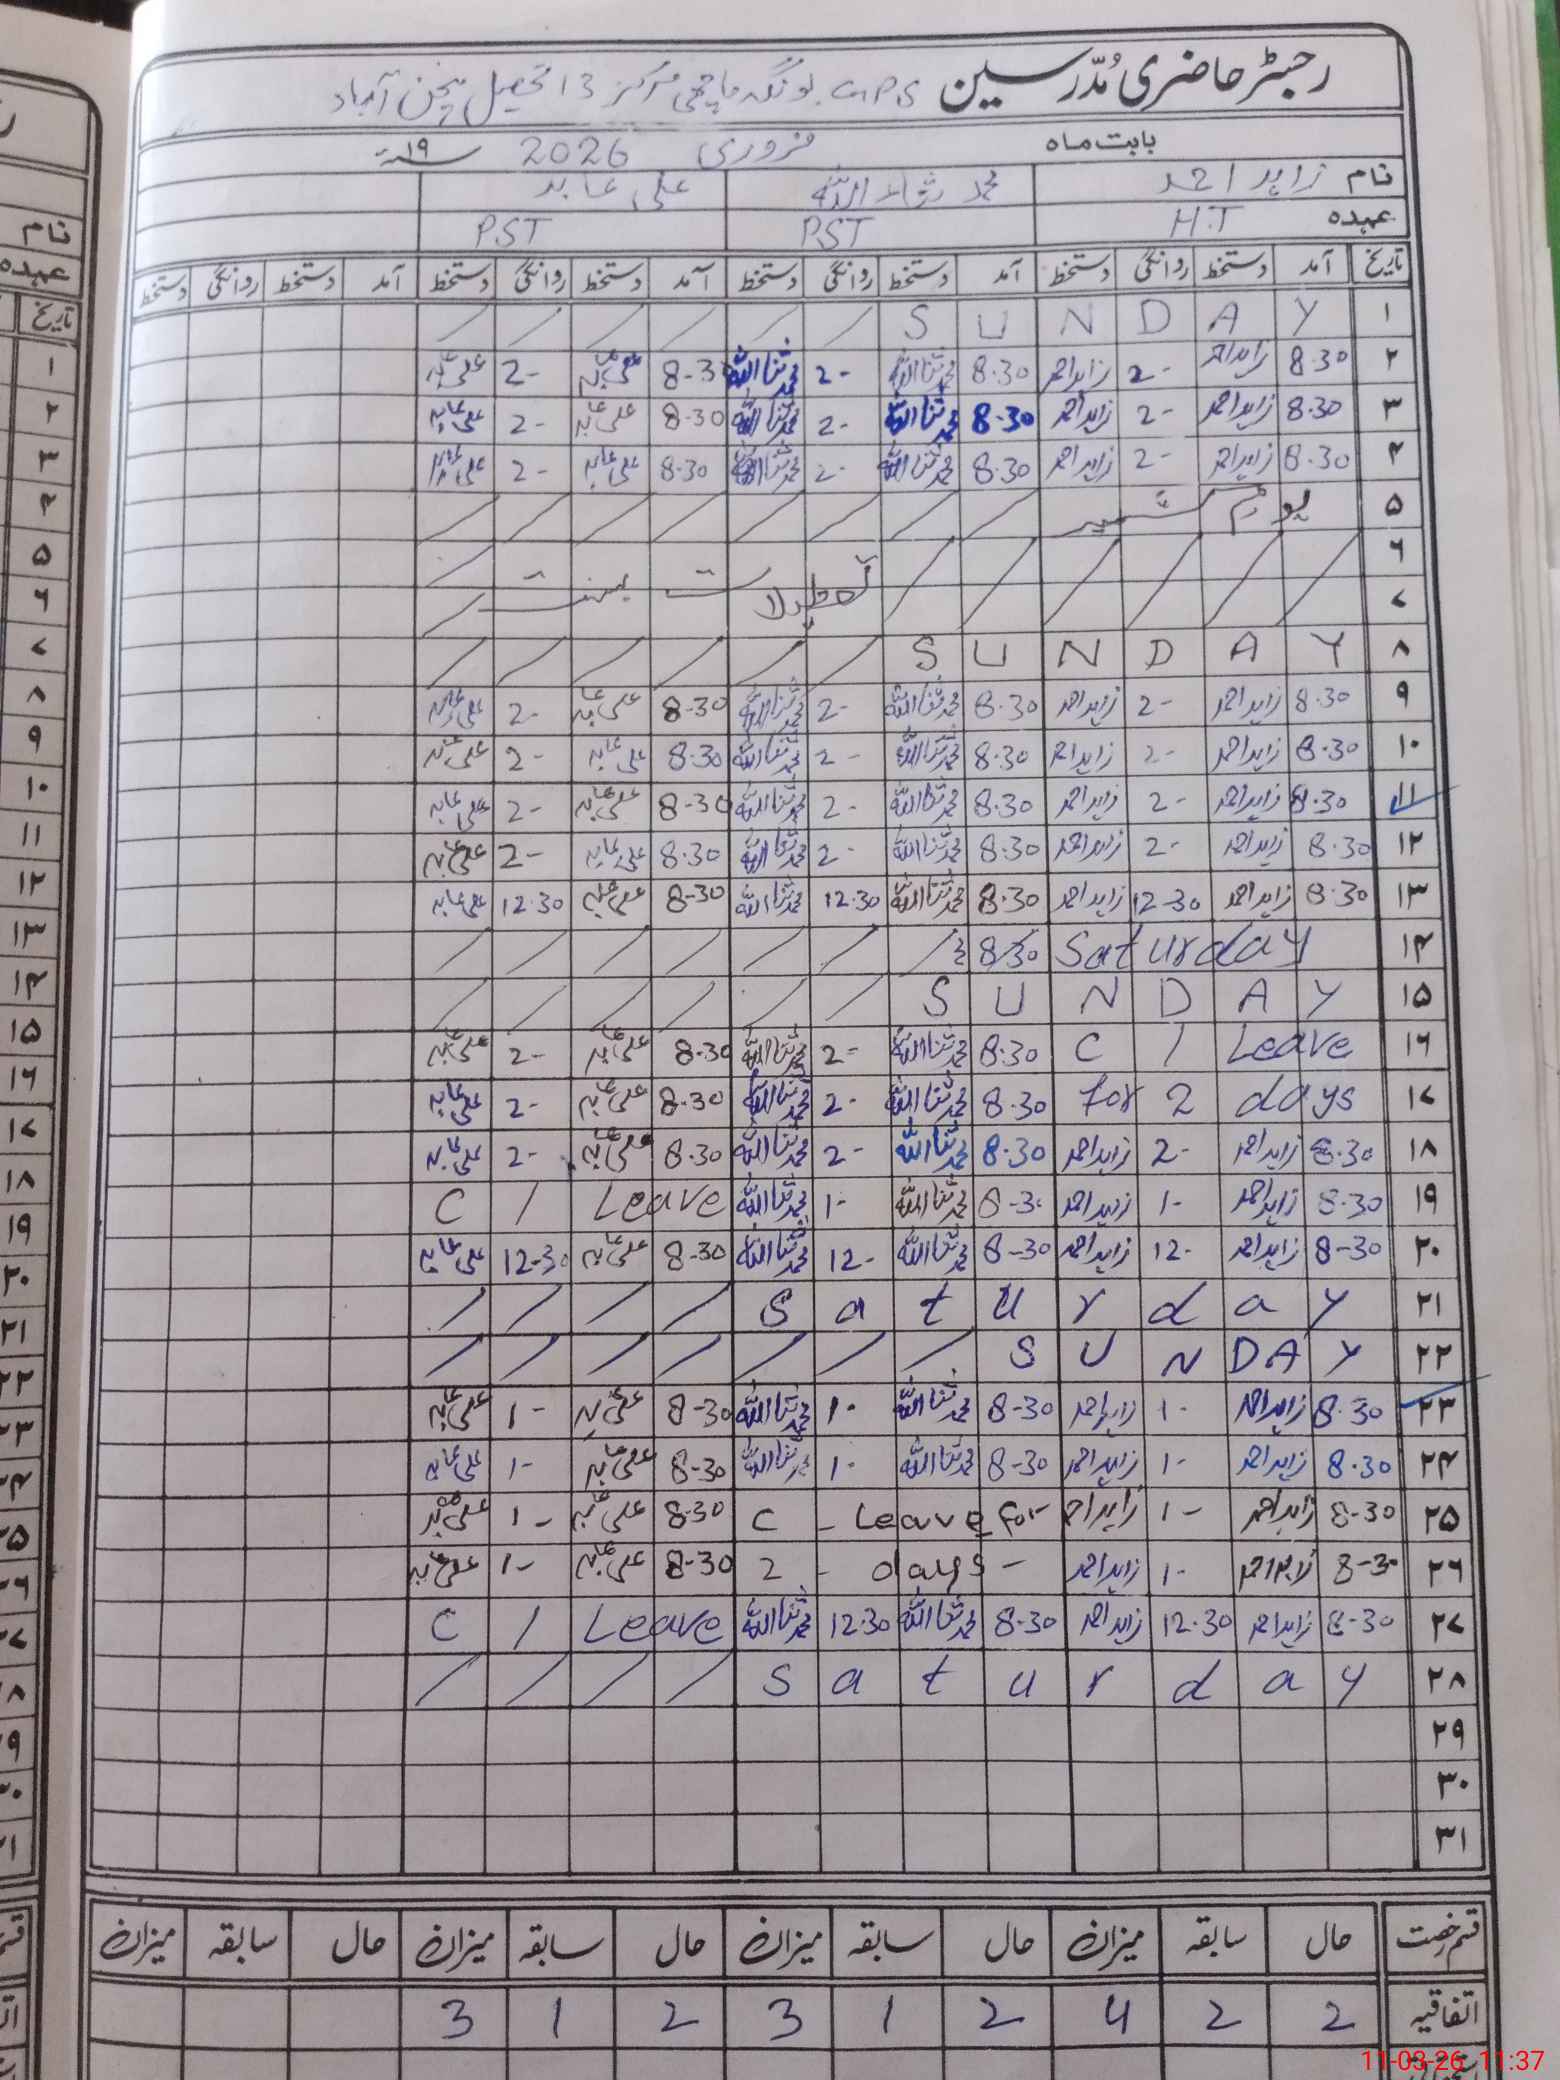 رجسٹر حاضری مُدّرسین GPS بونگہ ماچھی مرکز 13 تحصیل منچن آباد
بابت ماہ فروری 2026 سنہ ۱۹
نام زاہد احمد محمد ثناء اللہ علی عابد
عہدہ H.T PST PST
تاریخ آمد دستخط روانگی دستخط آمد دستخط روانگی دستخط آمد دستخط روانگی دستخط آمد دستخط روانگی دستخط
۱ SUNDAY
۲ 8.30 زاہداحمد 2- زاہداحمد 8.30 محمدثنااللہ 2- محمدثنااللہ 8-30 علی عابد 2- علی عابد
۳ 8.30 زاہداحمد 2- زاہداحمد 8.30 محمدثنااللہ 2- محمدثنااللہ 8-30 علی عابد 2- علی عابد
۴ 8.30 زاہداحمد 2- زاہداحمد 8.30 محمدثنااللہ 2- محمدثنااللہ 8.30 علی عابد 2- علی عابد
۵ یوم کشمیر
۶ تعطیلات بسنت
۷
۸ SUNDAY
۹ 8.30 زاہداحمد 2- زاہداحمد 8.30 محمدثنااللہ 2- محمدثنااللہ 8-30 علی عابد 2- علی عابد
۱۰ 8.30 زاہداحمد 2- زاہداحمد 8.30 محمدثنااللہ 2- محمدثنااللہ 8.30 علی عابد 2- علی عابد
۱۱ 8.30 زاہداحمد 2- زاہداحمد 8.30 محمدثنااللہ 2- محمدثنااللہ 8-30 علی عابد 2- علی عابد
۱۲ 8.30 زاہداحمد 2- زاہداحمد 8.30 محمدثنااللہ 2- محمدثنااللہ 8.30 علی عابد 2- علی عابد
۱۳ 8.30 زاہداحمد 12-30 زاہداحمد 8.30 محمدثنااللہ 12.30 محمدثنااللہ 8-30 علی عابد 12.30 علی عابد
۱۴ Saturday 8.30
۱۵ SUNDAY
۱۶ C / Leave 8.30 محمدثنااللہ 2- محمدثنااللہ 8.30 علی عابد 2- علی عابد
۱۷ for 2 days 8.30 محمدثنااللہ 2- محمدثنااللہ 8.30 علی عابد 2- علی عابد
۱۸ 8.30 زاہداحمد 2- زاہداحمد 8.30 محمدثنااللہ 2- محمدثنااللہ 8.30 علی عابد 2- علی عابد
۱۹ 8.30 زاہداحمد 1- زاہداحمد 8-30 محمدثنااللہ 1- محمدثنااللہ C / Leave
۲۰ 8-30 زاہداحمد 12- زاہداحمد 8-30 محمدثنااللہ 12- محمدثنااللہ 8-30 علی عابد 12-30 علی عابد
۲۱ Saturday
۲۲ SUNDAY
۲۳ 8.30 زاہداحمد 1- زاہداحمد 8-30 محمدثنااللہ 1- محمدثنااللہ 8-30 علی عابد 1- علی عابد
۲۴ 8.30 زاہداحمد 1- زاہداحمد 8-30 محمدثنااللہ 1- محمدثنااللہ 8-30 علی عابد 1- علی عابد
۲۵ 8-30 زاہداحمد 1- زاہداحمد C - Leave for 8-30 علی عابد 1- علی عابد
۲۶ 8-30 زاہداحمد 1- زاہداحمد 2 - days - 8-30 علی عابد 1- علی عابد
۲۷ 8-30 زاہداحمد 12.30 زاہداحمد 8-30 محمدثنااللہ 12.30 محمدثنااللہ C / Leave
۲۸ Saturday
۲۹
۳۰
۳۱
قسم رخصت حال سابقہ میزان حال سابقہ میزان حال سابقہ میزان حال سابقہ میزان
اتفاقیہ 2 2 4 2 1 3 2 1 3
11-03-26 11:37